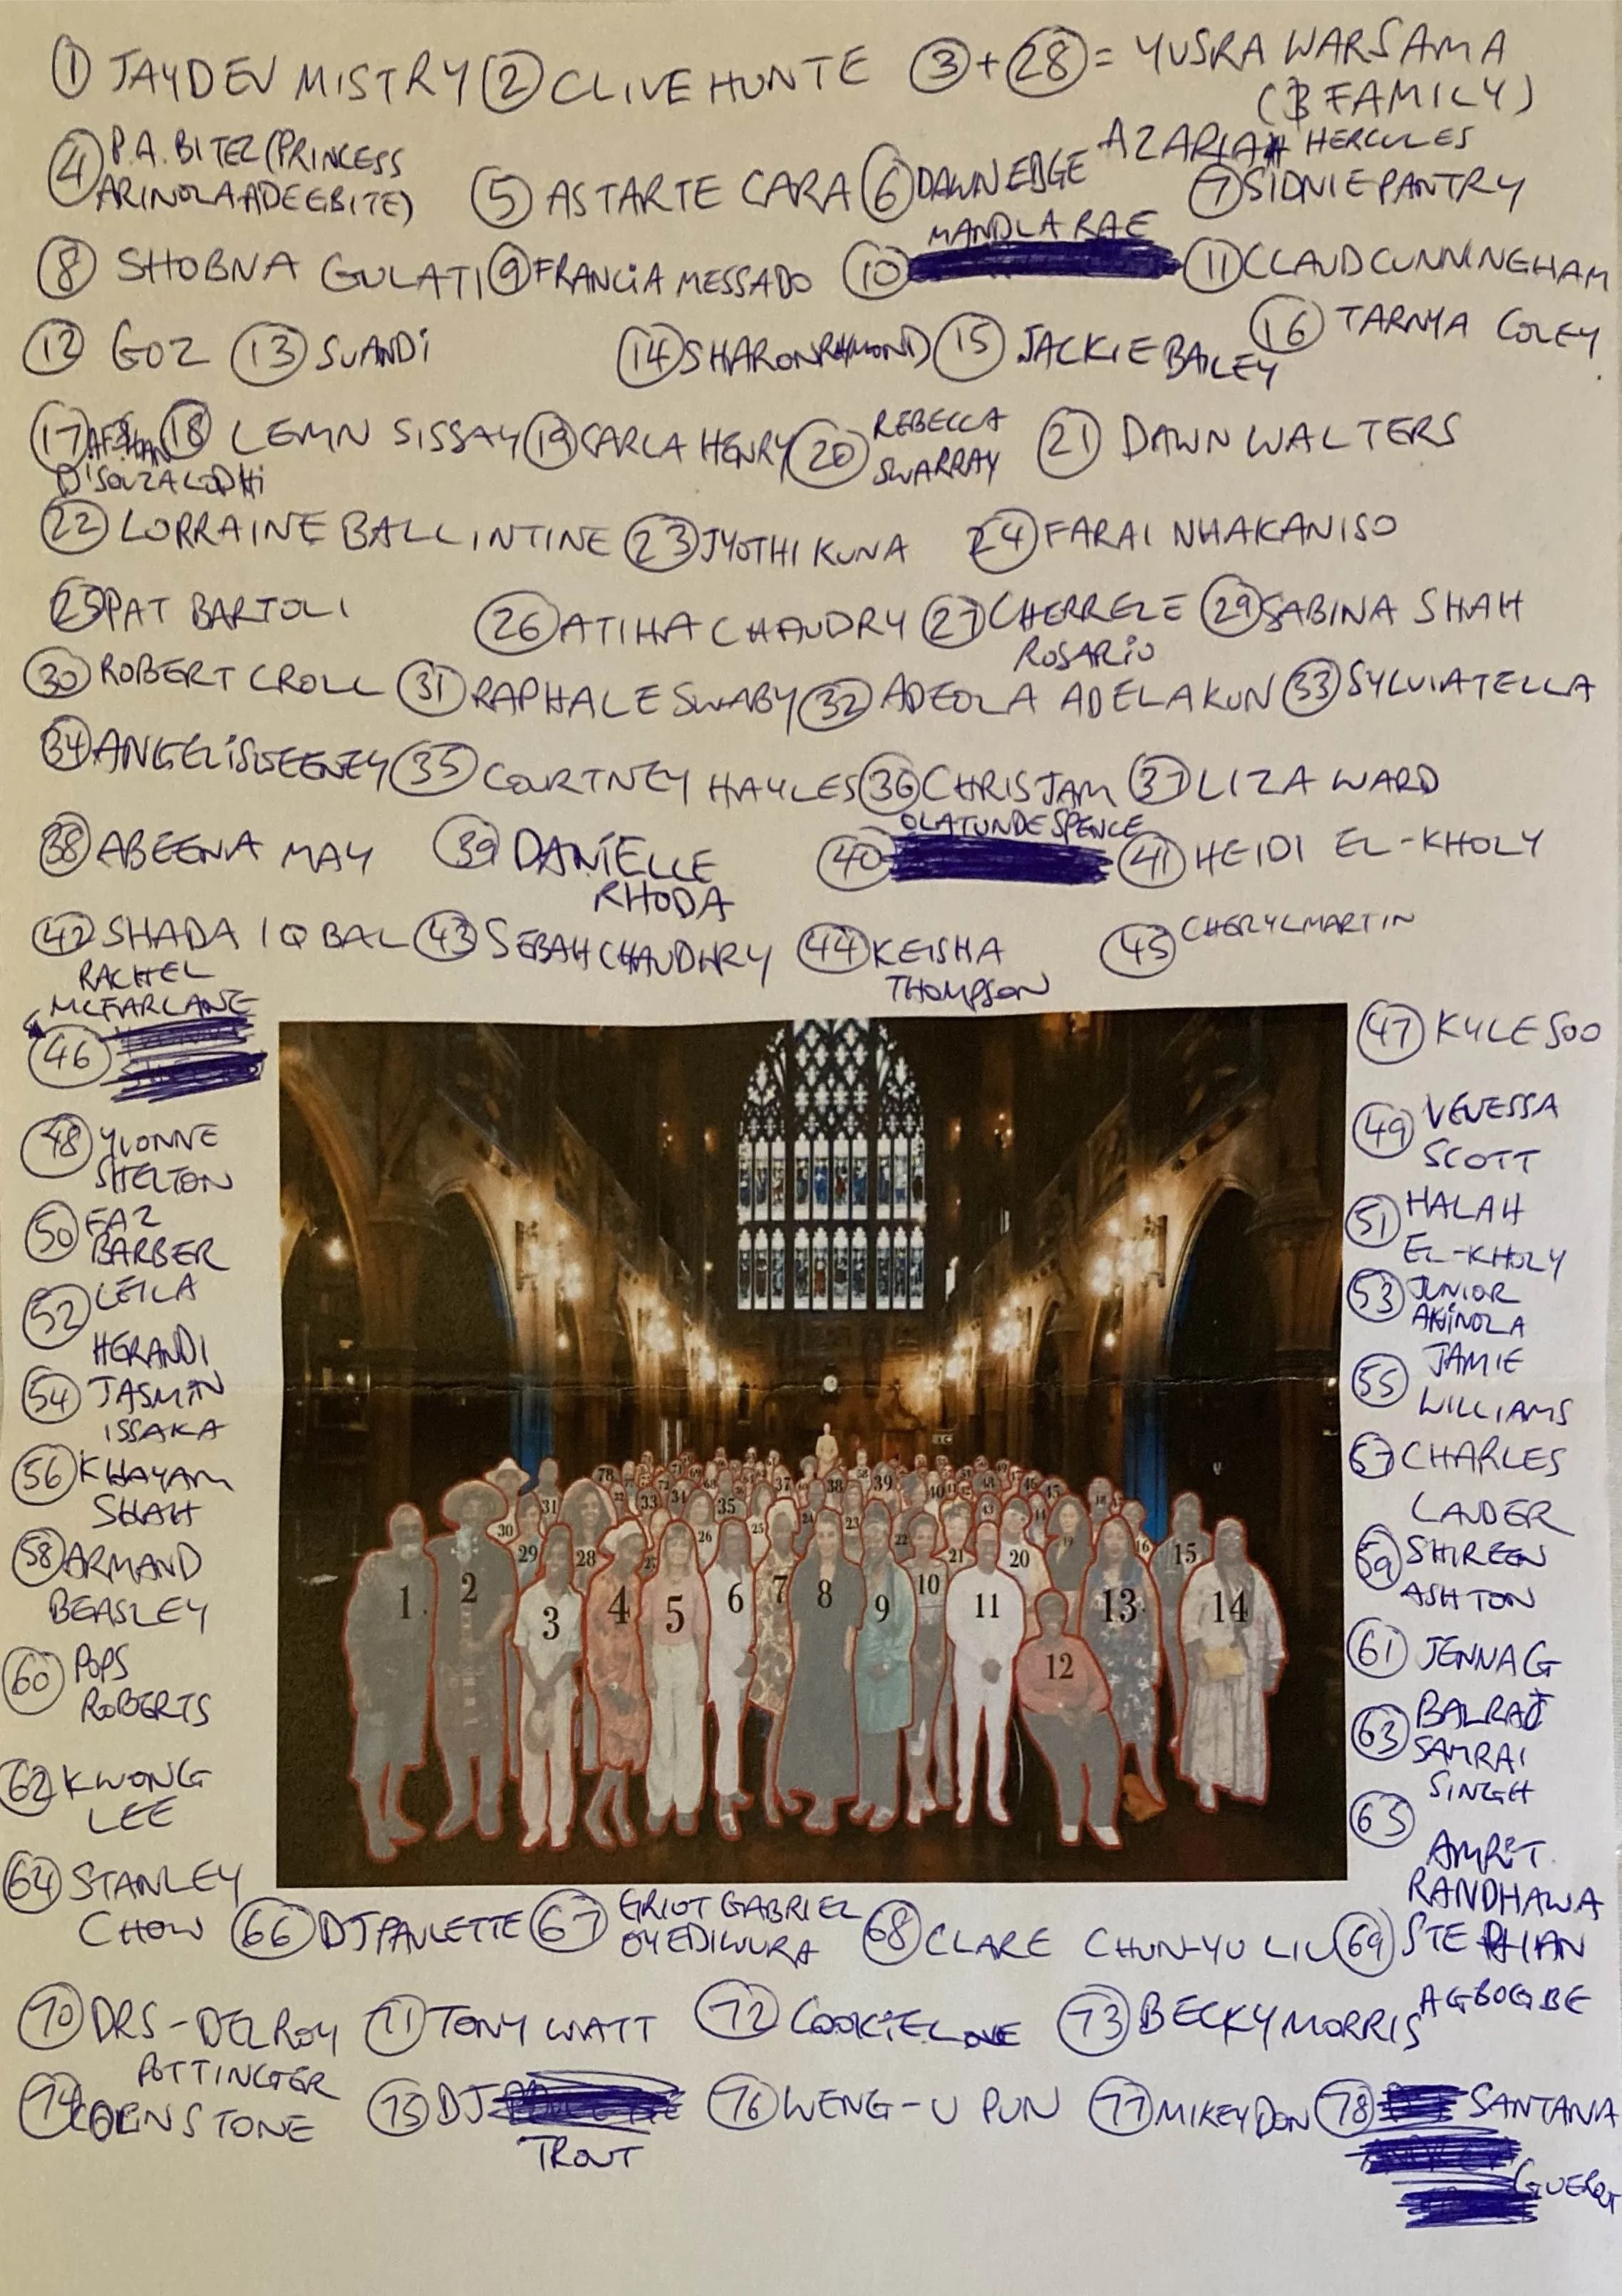 1 JAYDEV MISTRY 2 CLIVE HUNTE 3 + 28 = YUSRA WARSAMA
(3 FAMILY)
4 P.A. BITEZ (PRINCESS
ARINOLA ADEEBITE) 5 ASTARTE CARA 6 DAWN EDGE AZARIAH HERCULES
7 SIDNIE PANTRY
MANDLA RAE
8 SHOBNA GULATI 9 FRANCiA MESSADO 10 11 CLAUD CUNNINGHAM
12 GOZ 13 SUANDi 14 SHARON RAYMOND 15 JACKIE BAILEY 16 TARNYA COLEY
17 AFSHAN 18 LEMN SISSAY 19 CARLA HENRY 20 REBECCA
SWARRAY 21 DAWN WALTERS
D'SOUZA LODHi
22 LORRAINE BALLINTINE 23 JYOTHI KUNA 24 FARAI NHAKANISO
25 PAT BARTOLI 26 ATIHA CHAUDRY 27 CHERRELE
ROSARiO 29 SABINA SHAH
30 ROBERT CROLL 31 RAPHALE SWABY 32 ADEOLA ADELAKUN 33 SYLVIA TELLA
34 ANGELi SWEENEY 35 COURTNEY HAYLES 36 CHRIS JAM 37 LIZA WARD
OLATUNDE SPENCE
38 ABEENA MAY 39 DANiELLE
RHODA 40 41 HEIDI EL-KHOLY
42 SHADA IQBAL 43 SEBAH CHAUDHRY 44 KEISHA
THOMPSON 45 CHERYL MARTIN
RACHEL
MCFARLANE
46
47 KYLE SOO
48 YVONNE
SHELTON
49 VENESSA
SCOTT
50 FAZ
BARBER
51 HALAH
EL-KHOLY
52 LEILA
HERANDI
53 JUNIOR
AKiNOLA
54 JASMiN
ISSAKA
55 JAMIE
WILLIAMS
56 KHAYAM
SHAH
57 CHARLES
LAUDER
58 ARMAND
BEASLEY
59 SHIREEN
ASHTON
60 POPS
ROBERTS
61 JENNA G
62 KWONG
LEE
63 BALRAJ
SAMRAI
SINGH
64 STANLEY
CHOW
65
AMRiT
RANDHAWA
66 DJ PAULETTE 67 GRIOT GABRIEL
OYEDIWURA 68 CLARE CHUN-YU LIU 69 STEPHAN
AGBOGBE
70 DRS - DELROY
POTTINGER 71 TONY WATT 72 COOKIE LOVE 73 BECKY MORRIS
74 COLIN STONE 75 DJ
TROUT 76 WENG-U PUN 77 MIKEY DON 78 SANTANA
GUERRA
78 37 38 39
31 33 34 35
30 29 28 26 25 24 23 22 21 20 19 16 15
1 2 3 4 5 6 7 8 9 10 11 12 13 14